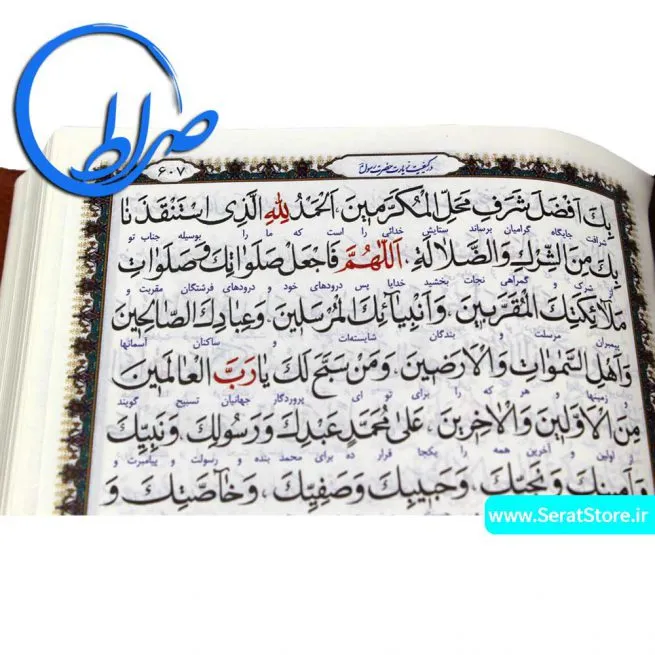 صراط
در کیفیت زیارت حضرت رسول
۶۰۷
بِكَ اَفْضَلَ شَرَفِ مَحَلِّ الْمُكَرَّمينَ، اَلْحَمْدُ لِلّٰهِ الَّذِى اسْتَنْقَذَنا
شرافت جایگاه گرامیان برساند ستایش خدائی را است که ما را بوسیله جناب تو
بِكَ مِنَ الشِّرْكِ وَالضَّلالَةِ، اَللّٰهُمَّ فَاجْعَلْ صَلَواتِكَ وَصَلَواتِ
از شرک و گمراهی نجات بخشید خدایا پس درودهای خود و درودهای فرشتگان مقربت و
مَلائِكَتِكَ الْمُقَرَّبينَ، وَاَنْبِيائِكَ الْمُرْسَلينَ، وَعِبادِكَ الصّالِحينَ
پیمبران مرسلت و بندگان شایسته‌ات و ساکنان آسمانها
وَاَهْلِ السَّمٰواتِ وَالْاَرَضينَ، وَمَنْ سَبَّحَ لَكَ يا رَبَّ الْعالَمينَ
و زمینها و هر که را برای تو ای پروردگار جهانیان تسبیح گویند
مِنَ الْاَوَّلينَ وَالْاٰخِرينَ، عَلىٰ مُحَمَّدٍ عَبْدِكَ وَرَسُولِكَ، وَنَبِيِّكَ
از اولین و آخرین همه را یکجا قرار ده برای محمد بنده و رسولت و پیامبرت و
وَاَمينِكَ وَنَجِيِّكَ، وَحَبيبِكَ وَصَفِيِّكَ، وَخاصَّتِكَ وَ
www.SeratStore.ir